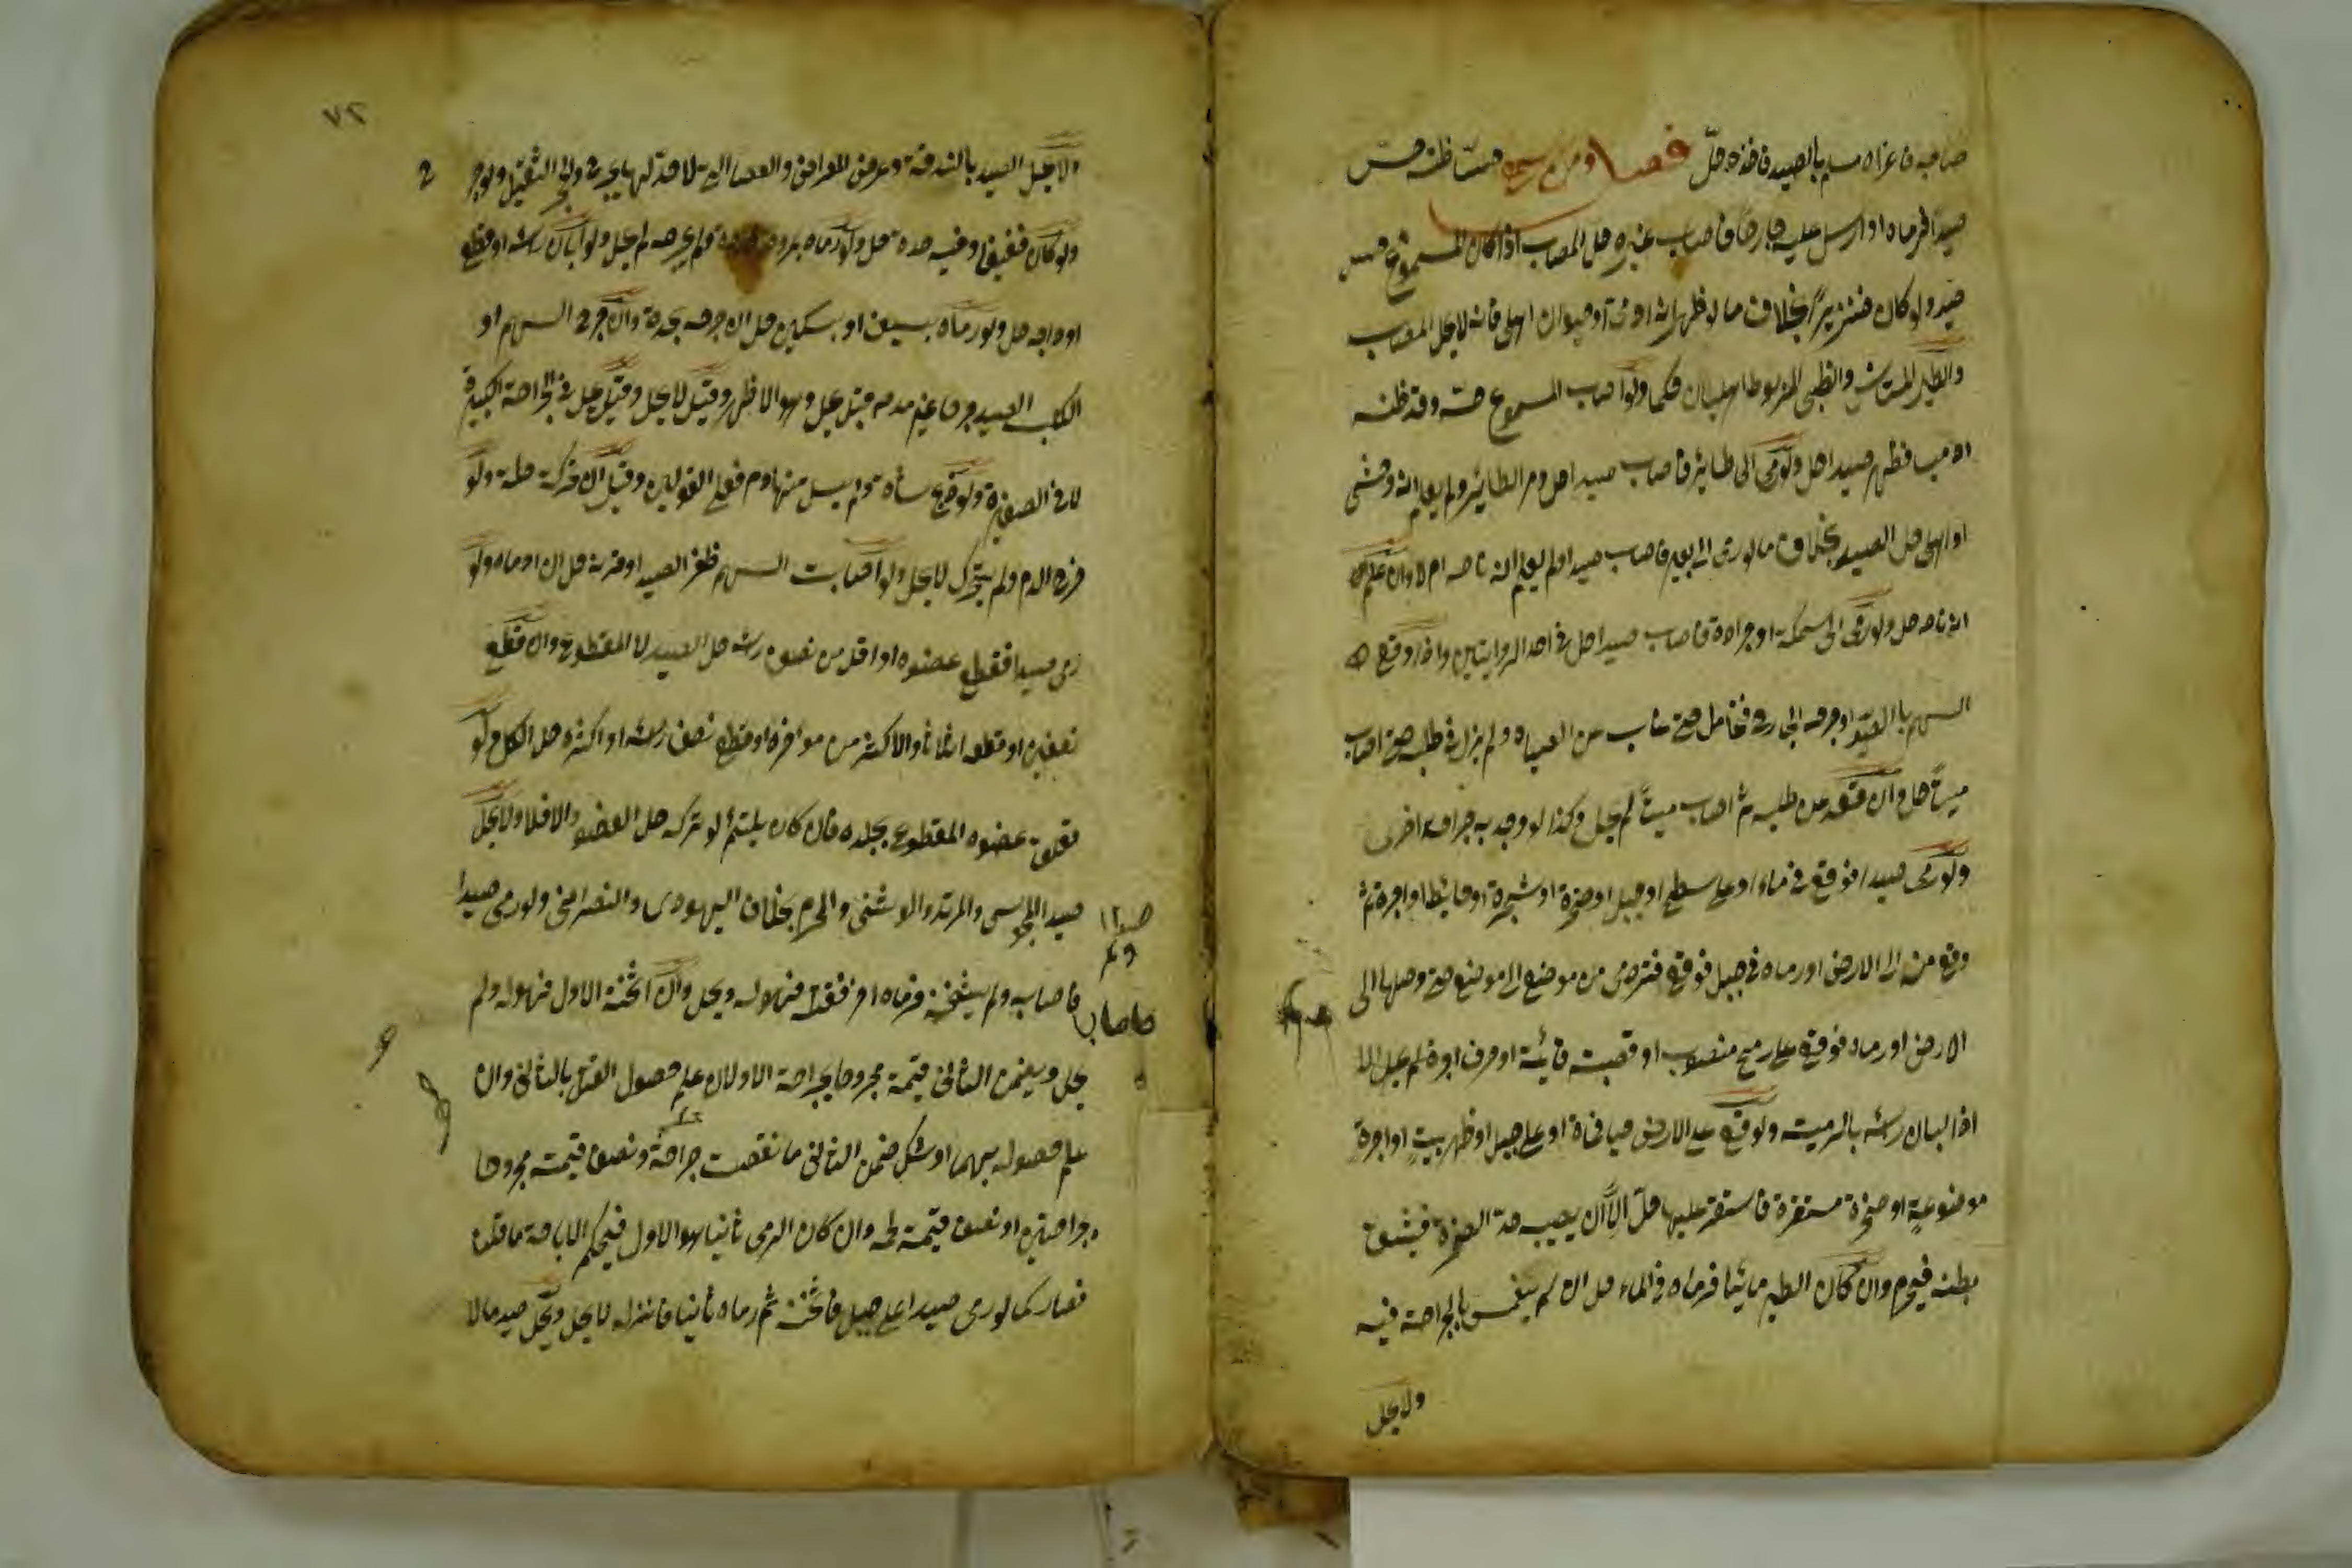 صاحبه فاغراه مسلم بالصيد فاخذه حلّ فصل ومن سمع حسّا ظنه حسّ
صيد فرماه او ارسل عليه جارحا فاصاب غيره حل المصاب اذا كان المسموع حس
صيد ولو كان خنزيرًا بخلاف ما لو ظهر انه او حيوان اهلي فانه لا يحل المصاب
والطير المستانس والظبي المربوط اهليان حكما ولو اصاب المسموع حسه وقد ظنه
ادميا فظهر صيدا حل ولو رمى الى طائر فاصاب صيدا حل ومر الطائر ولم يعلم انه وحشي
او اهلي حل الصيد بخلاف ما لو رمى الى بعير فاصاب صيدا ولم يعلم انه ناد ام لا وان علم
انه ناد حل ولو رمى الى سمكة او جرادة فاصاب صيدا حل في احد الروايتين واذا وقع
السهم بالصيد او جرحه الجارح فتحامل حتى غاب عن الصياد ولم يزل في طلبه حتى اصابه
ميتًا حل وان قعد عن طلبه ثم اصابه ميتًا لم يحل وكذا لو وجد به جراحة اخرى
ولو رمى صيدا فوقع في ماء او على سطح او جبل او صخرة او شجرة او حائط او اجرة ثم
وقع منه الى الارض او رماه في جبل فوقع فتردى من موضع الى موضع حتى وصلها الى
الارض او رماه فوقع على رمح منصوب او قصبة قائمة او حرف اجرة لم يحل الا
اذا ابان رأسه بالرمية ولو وقع على الارض حيا فمات او على جبل او ظهر بيتٍ او اجرة
موضوعةٍ او صخرة مستقرة فاستقر عليها حلّ الّا ان يصيب حد الصخرة فينشق
بطنه فيحرم وان كان الطير مائيا فرماه في الماء حل ان لم ينغمس بالجراحة فيه
ولا يحل
٧٢
ولا يحل الصيد بالبندقة وعرض المعراض والعصا التي لا حد لها يجرح والحجر الثقيل ولو جرح
ولو كان خفيفا وفيه حدة حل ولو رماه بمروة حديدة ولم يجرحه لم يحل ولو ابان رأسه او قطع
اوداجه حل ولو رماه بسيف او بسكين حل ان جرحه بحده وان جرح السهم او
الكلب الصيد جرحا غير مدم قيل يحل وهو الاظهر وقيل لا يحل وقيل يحل في الجراحة الكبيرة
لا في الصغيرة ولو ذبح شاة ولم يسل منها دم فعلى القولين وقيل ان تحركت حلت ولو
خرج الدم ولم يتحرك لا يحل ولو اصاب السهم ظفر الصيد او قرنه حل ان ادماه ولو
رمى صيدا فقطع عضوه او اقل من نصف رأسه حل الصيد لا المقطوع وان قطع
نصفين او قطعه اثلاثا والاكثر من مؤخره او قطع نصف رأسه او اكثره حل الكل ولو
تعلق عضوه المقطوع بجلده فان كان يلتئم لو تركه حل العضو والا فلا ولا يحل
صيد المجوسي والمرتد والوثني والمحرم بخلاف اليهودي والنصراني ولو رمى صيدا
فاصابه ولم يثخنه فرماه اخر فقتله فهو له ويحل وان اثخنه الاول فهو له ولم
يحل ويضمن الثاني قيمته مجروحا بجراحة الاول ان علم حصول القتل بالثاني وان
علم حصوله بهما او شك ضمن الثاني ما نقصت جراحته ونصف قيمته مجروحا
بجراحتين او نصف قيمة لحمه وان كان الرمي ثانيا هو الاول فحكم الاباحة ما قلنا
فصار كما لو رمى صيدا على جبل فاثخنه ثم رماه ثانيا فانزله لا يحل ويحل صيد ما لا
صيدا
ولم
فاصاب